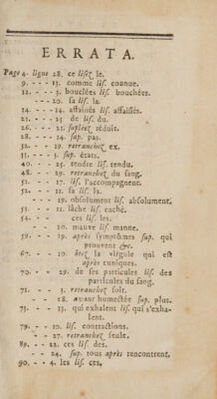 ERRATA.
Page 4. ligne 28. ce lisez le.
9. --- 13. comme lis. connue.
12. --- 3. bouclées lis. bouchées.
--- 20. sa lis. la.
14. --- 14. affaînés lis. affaissés.
21. -- 23. de lis. du.
26. -- 21. supléez réduit.
28. -- 14. sup. pas.
32. -- 19. retranchez ex.
31. -- 3. sup. états.
40. -- 25. tendre lis. tendu.
48. -- 19. retranchez du sang.
51. -- 17. lis. l'accompagnent.
52. -- 21. sa lis. la
-- 29. obsolument lis. absolument.
53. -- 21. lâché lis. caché.
54. -- ces lis. les.
-- 20. mauve lis. manne.
59. -- 19. après symptômes sup. qui
prouvent &c.
67. -- 10. ôtez la virgule qui est
après tuniques.
70. -- 29. de ses particules lis. des
particules du sang.
71. -- 3. retranchez soit.
-- 18. avant humectée sup. plus.
73. -- 13. qui exhalent lis. qui s'exha-
lent.
79. -- 20. lis. contractions.
-- 27. retranchez seule.
89. -- 22. ces lis. des.
-- 24. sup. tous après rencontrent.
90. -- 4. les lis. ces.